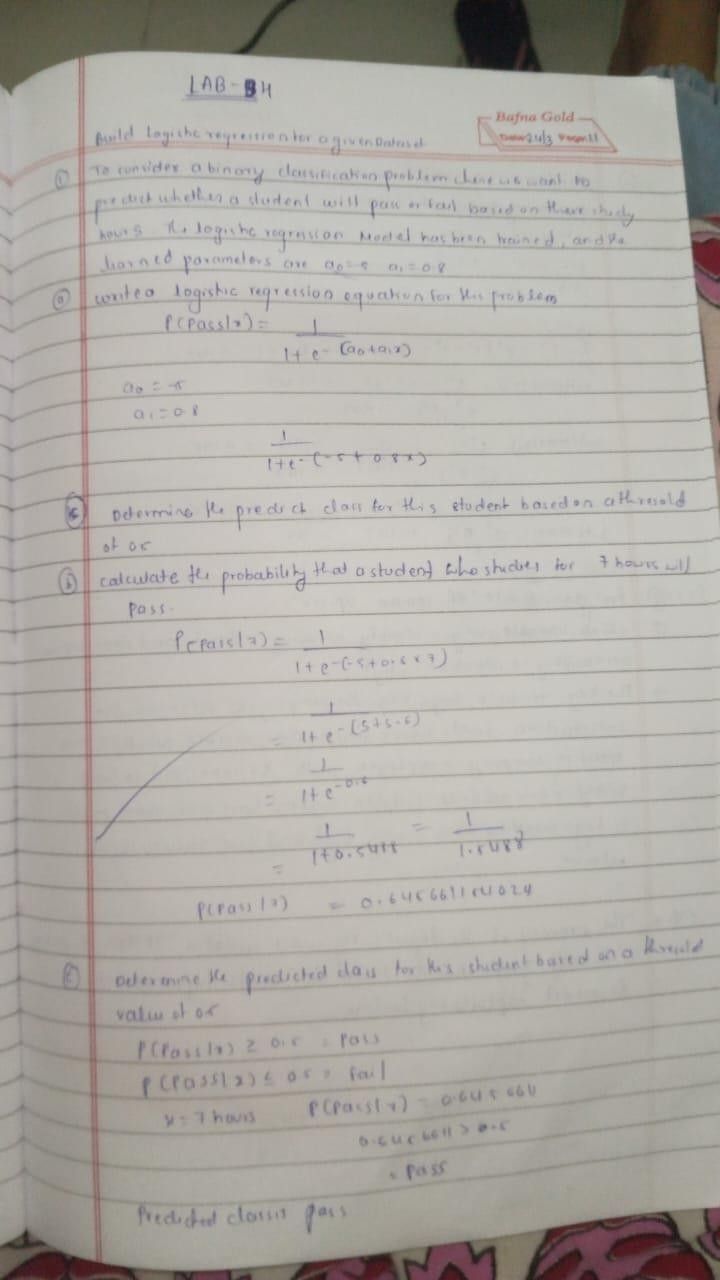 LAB-34
Bafna Gold
Date: 24/3 Page: 11
Build Logistic regression for a given Dataset
① To consider a binary classification problem where we want to
predict whether a student will pass or fail based on there study
hours The logistic regression Model has been trained, and the
learned parameters are a0=-5 a1=0.8
ⓐ write a logistic regression equation for this problem
P(Pass|x) = 1
1+e-(a0+a1x)
a0 = -5
a1 = 0.8
1
1+e-(-5+0.8x)
Determine the predict class for this student based on a thresold
of 0.5
ⓑ calculate the probability that a student who studies for 7 hours will
pass.
P(Pass|7) = 1
1+e-(-5+0.8x7)
= 1
1+e-(5+5.6)
= 1
1+e-0.6
= 1 = 1
1+0.5488 1.5488
P(Pass|7) = 0.645661154024
ⓒ Determine the predicted class for this student based on a thresold
value of 0.5
P(Pass|x) ≥ 0.5 = Pass
P(Pass|x) ≤ 0.5 = fail
x = 7 hours P(Pass|x) = 0.645661
0.6456611 > 0.5
= Pass
Predicted class is pass